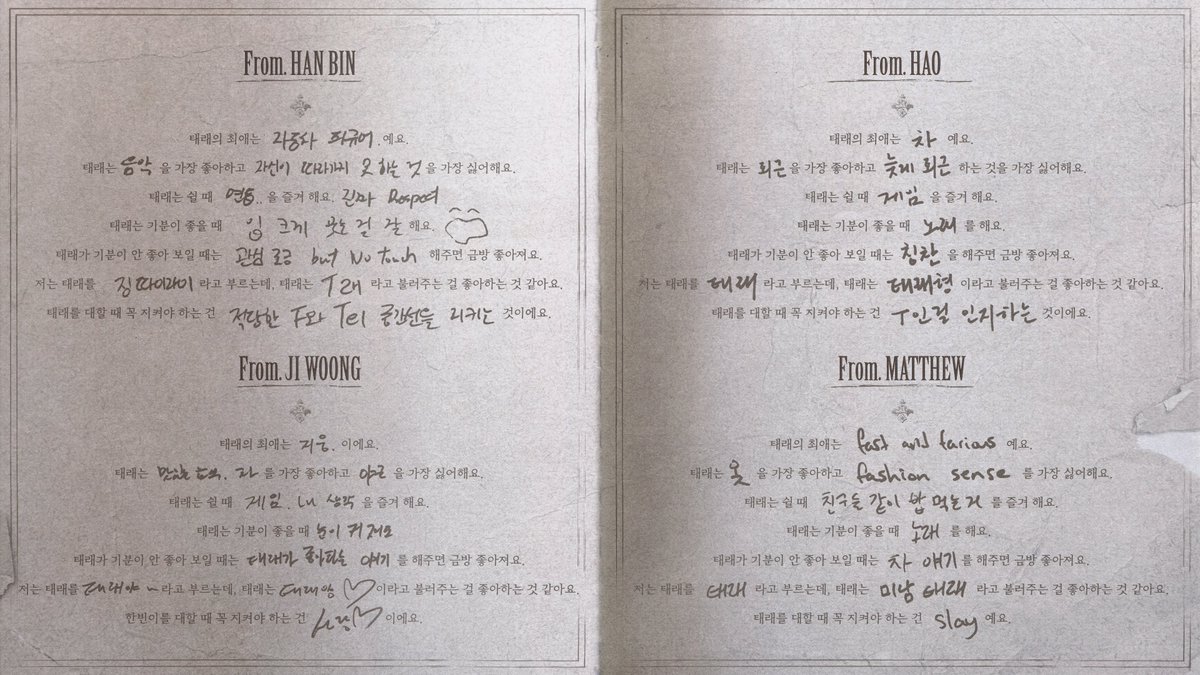 From. HAN BIN
태래의 최애는 자동차 피규어. 예요.
태래는 음악 을 가장 좋아하고 자신이 따라하지 못 하는 것 을 가장 싫어해요.
태래는 쉴 때 을 즐겨 해요. 진짜 Respect
태래는 기분이 좋을 때 입 크게 웃는 걸 잘 해요.
태래가 기분이 안 좋아 보일 때는 관심 조금 but No Touch 해주면 금방 좋아져요.
저는 태래를 라고 부르는데, 태래는 T래 라고 불러주는 걸 좋아하는 것 같아요.
태래를 대할 때 꼭 지켜야 하는 건 적당한 F와 T의 지키는 것이에요.
From. JI WOONG
태래의 최애는 지웅. 이에요.
태래는 맛있는 음식. 차 를 가장 좋아하고 야근 을 가장 싫어해요.
태래는 쉴 때 게임. 내 생각 을 즐겨 해요.
태래는 기분이 좋을 때 눈이 커져요
태래가 기분이 안 좋아 보일 때는 태래가 얘기 를 해주면 금방 좋아져요.
저는 태래를 태래야~ 라고 부르는데, 태래는 태래양 이라고 불러주는 걸 좋아하는 것 같아요.
한빈이를 대할 때 꼭 지켜야 하는 건 사랑 이에요.
From. HAO
태래의 최애는 차 예요.
태래는 퇴근 을 가장 좋아하고 늦게 퇴근 하는 것을 가장 싫어해요.
태래는 쉴 때 게임 을 즐겨 해요.
태래는 기분이 좋을 때 노래 를 해요.
태래가 기분이 안 좋아 보일 때는 칭찬 을 해주면 금방 좋아져요.
저는 태래를 태래 라고 부르는데, 태래는 태래형 이라고 불러주는 걸 좋아하는 것 같아요.
태래를 대할 때 꼭 지켜야 하는 건 T인걸 인지하는 것이에요.
From. MATTHEW
태래의 최애는 fast and furious 예요.
태래는 옷 을 가장 좋아하고 fashion sense 를 가장 싫어해요.
태래는 쉴 때 친구들 같이 밥 먹는거 를 즐겨 해요.
태래는 기분이 좋을 때 노래 를 해요.
태래가 기분이 안 좋아 보일 때는 차 얘기 를 해주면 금방 좋아져요.
저는 태래를 태래 라고 부르는데, 태래는 미남 태래 라고 불러주는 걸 좋아하는 것 같아요.
태래를 대할 때 꼭 지켜야 하는 건 slay 예요.